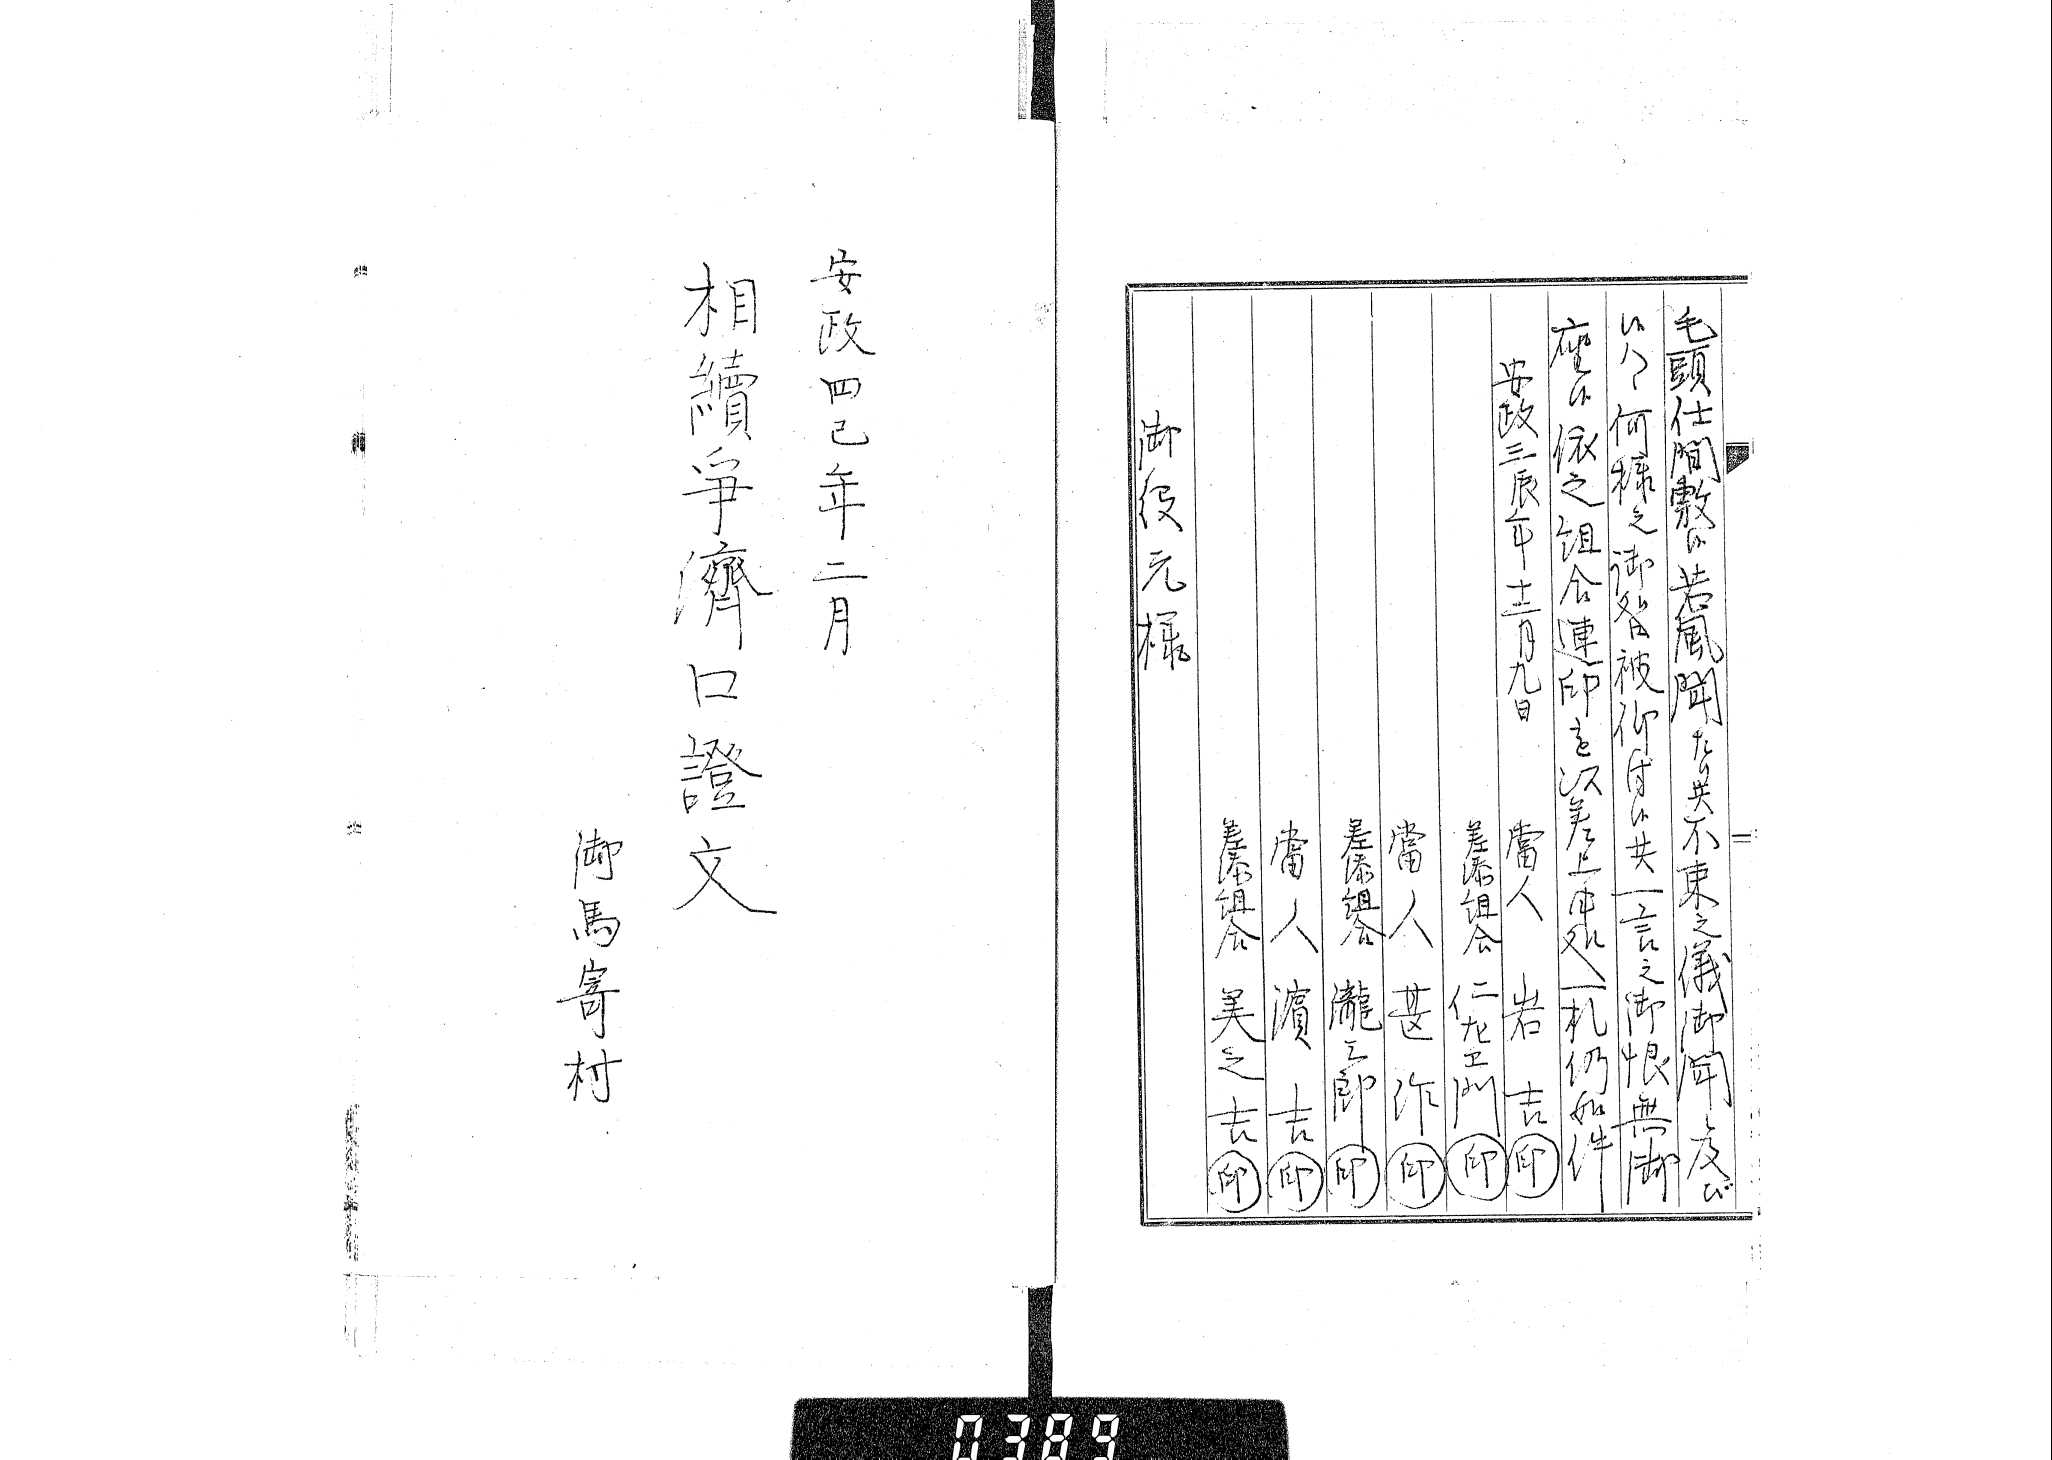 毛頭仕間敷候若風聞たり共不束之儀御聞及び
候ハヽ何様之御咎被仰付候共一言之御恨無御
座候依之組合連印を以差上申処一札仍如件
安政三辰年十二月九日
當人 岩吉㊞
差添組合 仁左エ門㊞
當人 甚作㊞
差添組合 瀧三郎㊞
當人 濱吉㊞
差添組合 美之吉㊞
御役元様
安政四巳年二月
相續爭濟口證文
御馬寄村
0389